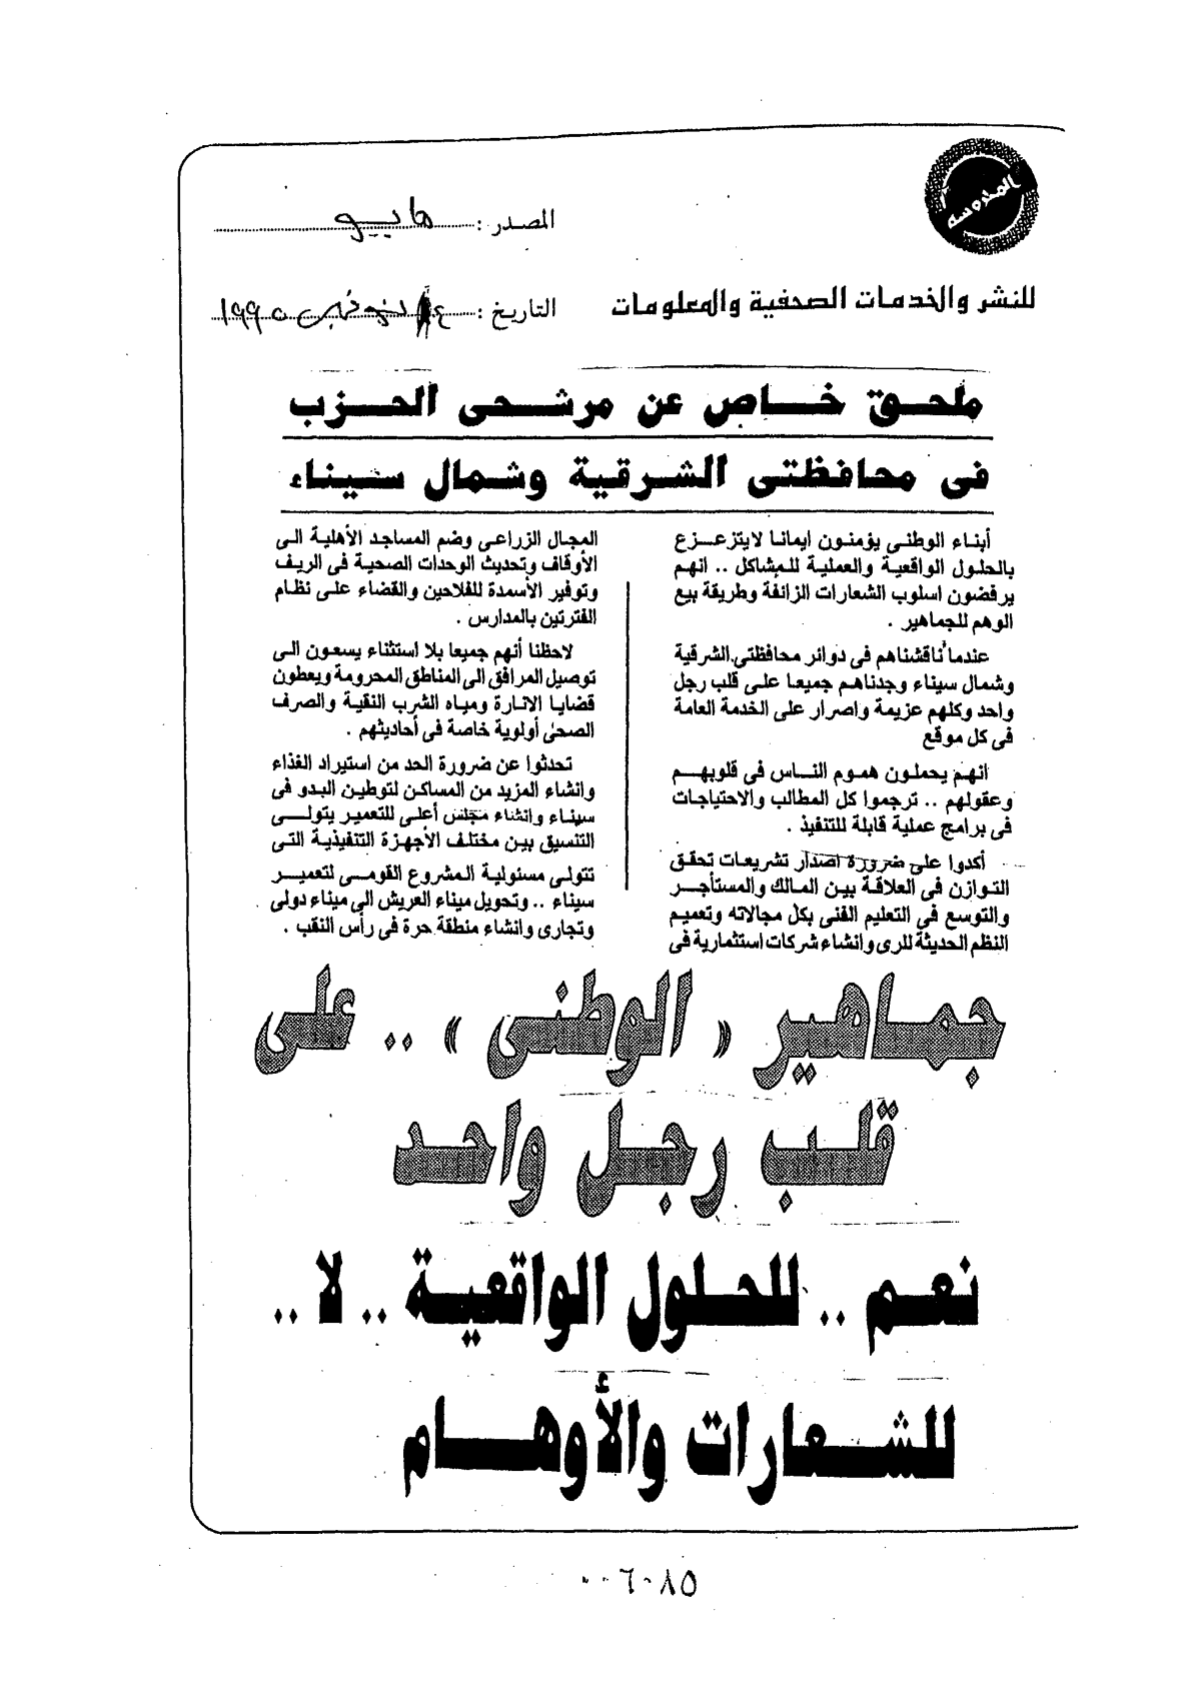 المحروسة
المصدر : مايو
للنشر والخدمات الصحفية والمعلومات
التاريخ : نوفمبر ١٩٩٥
ملحق خاص عن مرشحى الحزب
فى محافظتى الشرقية وشمال سيناء
أبناء الوطنى يؤمنون ايمانا لايتزعزع
بالحلول الواقعية والعملية للمشاكل .. انهم
يرفضون اسلوب الشعارات الزائفة وطريقة بيع
الوهم للجماهير .
عندما ناقشناهم فى دوائر محافظتى الشرقية
وشمال سيناء وجدناهم جميعا على قلب رجل
واحد وكلهم عزيمة واصرار على الخدمة العامة
فى كل موقع
انهم يحملون هموم الناس فى قلوبهم
وعقولهم .. ترجموا كل المطالب والاحتياجات
فى برامج عملية قابلة للتنفيذ .
أكدوا على ضرورة اصدار تشريعات تحقق
التوازن فى العلاقة بين المالك والمستأجر
والتوسع فى التعليم الفنى بكل مجالاته وتعميم
النظم الحديثة للرى وانشاء شركات استثمارية فى
المجال الزراعى وضم المساجد الأهلية الى
الأوقاف وتحديث الوحدات الصحية فى الريف
وتوفير الأسمدة للفلاحين والقضاء على نظام
الفترتين بالمدارس .
لاحظنا أنهم جميعا بلا استثناء يسعون الى
توصيل المرافق الى المناطق المحرومة ويعطون
قضايا الانارة ومياه الشرب النقية والصرف
الصحى أولوية خاصة فى أحاديثهم .
تحدثوا عن ضرورة الحد من استيراد الغذاء
وانشاء المزيد من المساكن لتوطين البدو فى
سيناء وانشاء مجلس أعلى للتعمير يتولى
التنسيق بين مختلف الأجهزة التنفيذية التى
تتولى مسئولية المشروع القومى لتعمير
سيناء .. وتحويل ميناء العريش الى ميناء دولى
وتجارى وانشاء منطقة حرة فى رأس النقب .
جماهير « الوطنى » .. على
قلب رجل واحد
نعم .. للحلول الواقعية .. لا ..
للشعارات والأوهام
٠٠٦٠٨٥